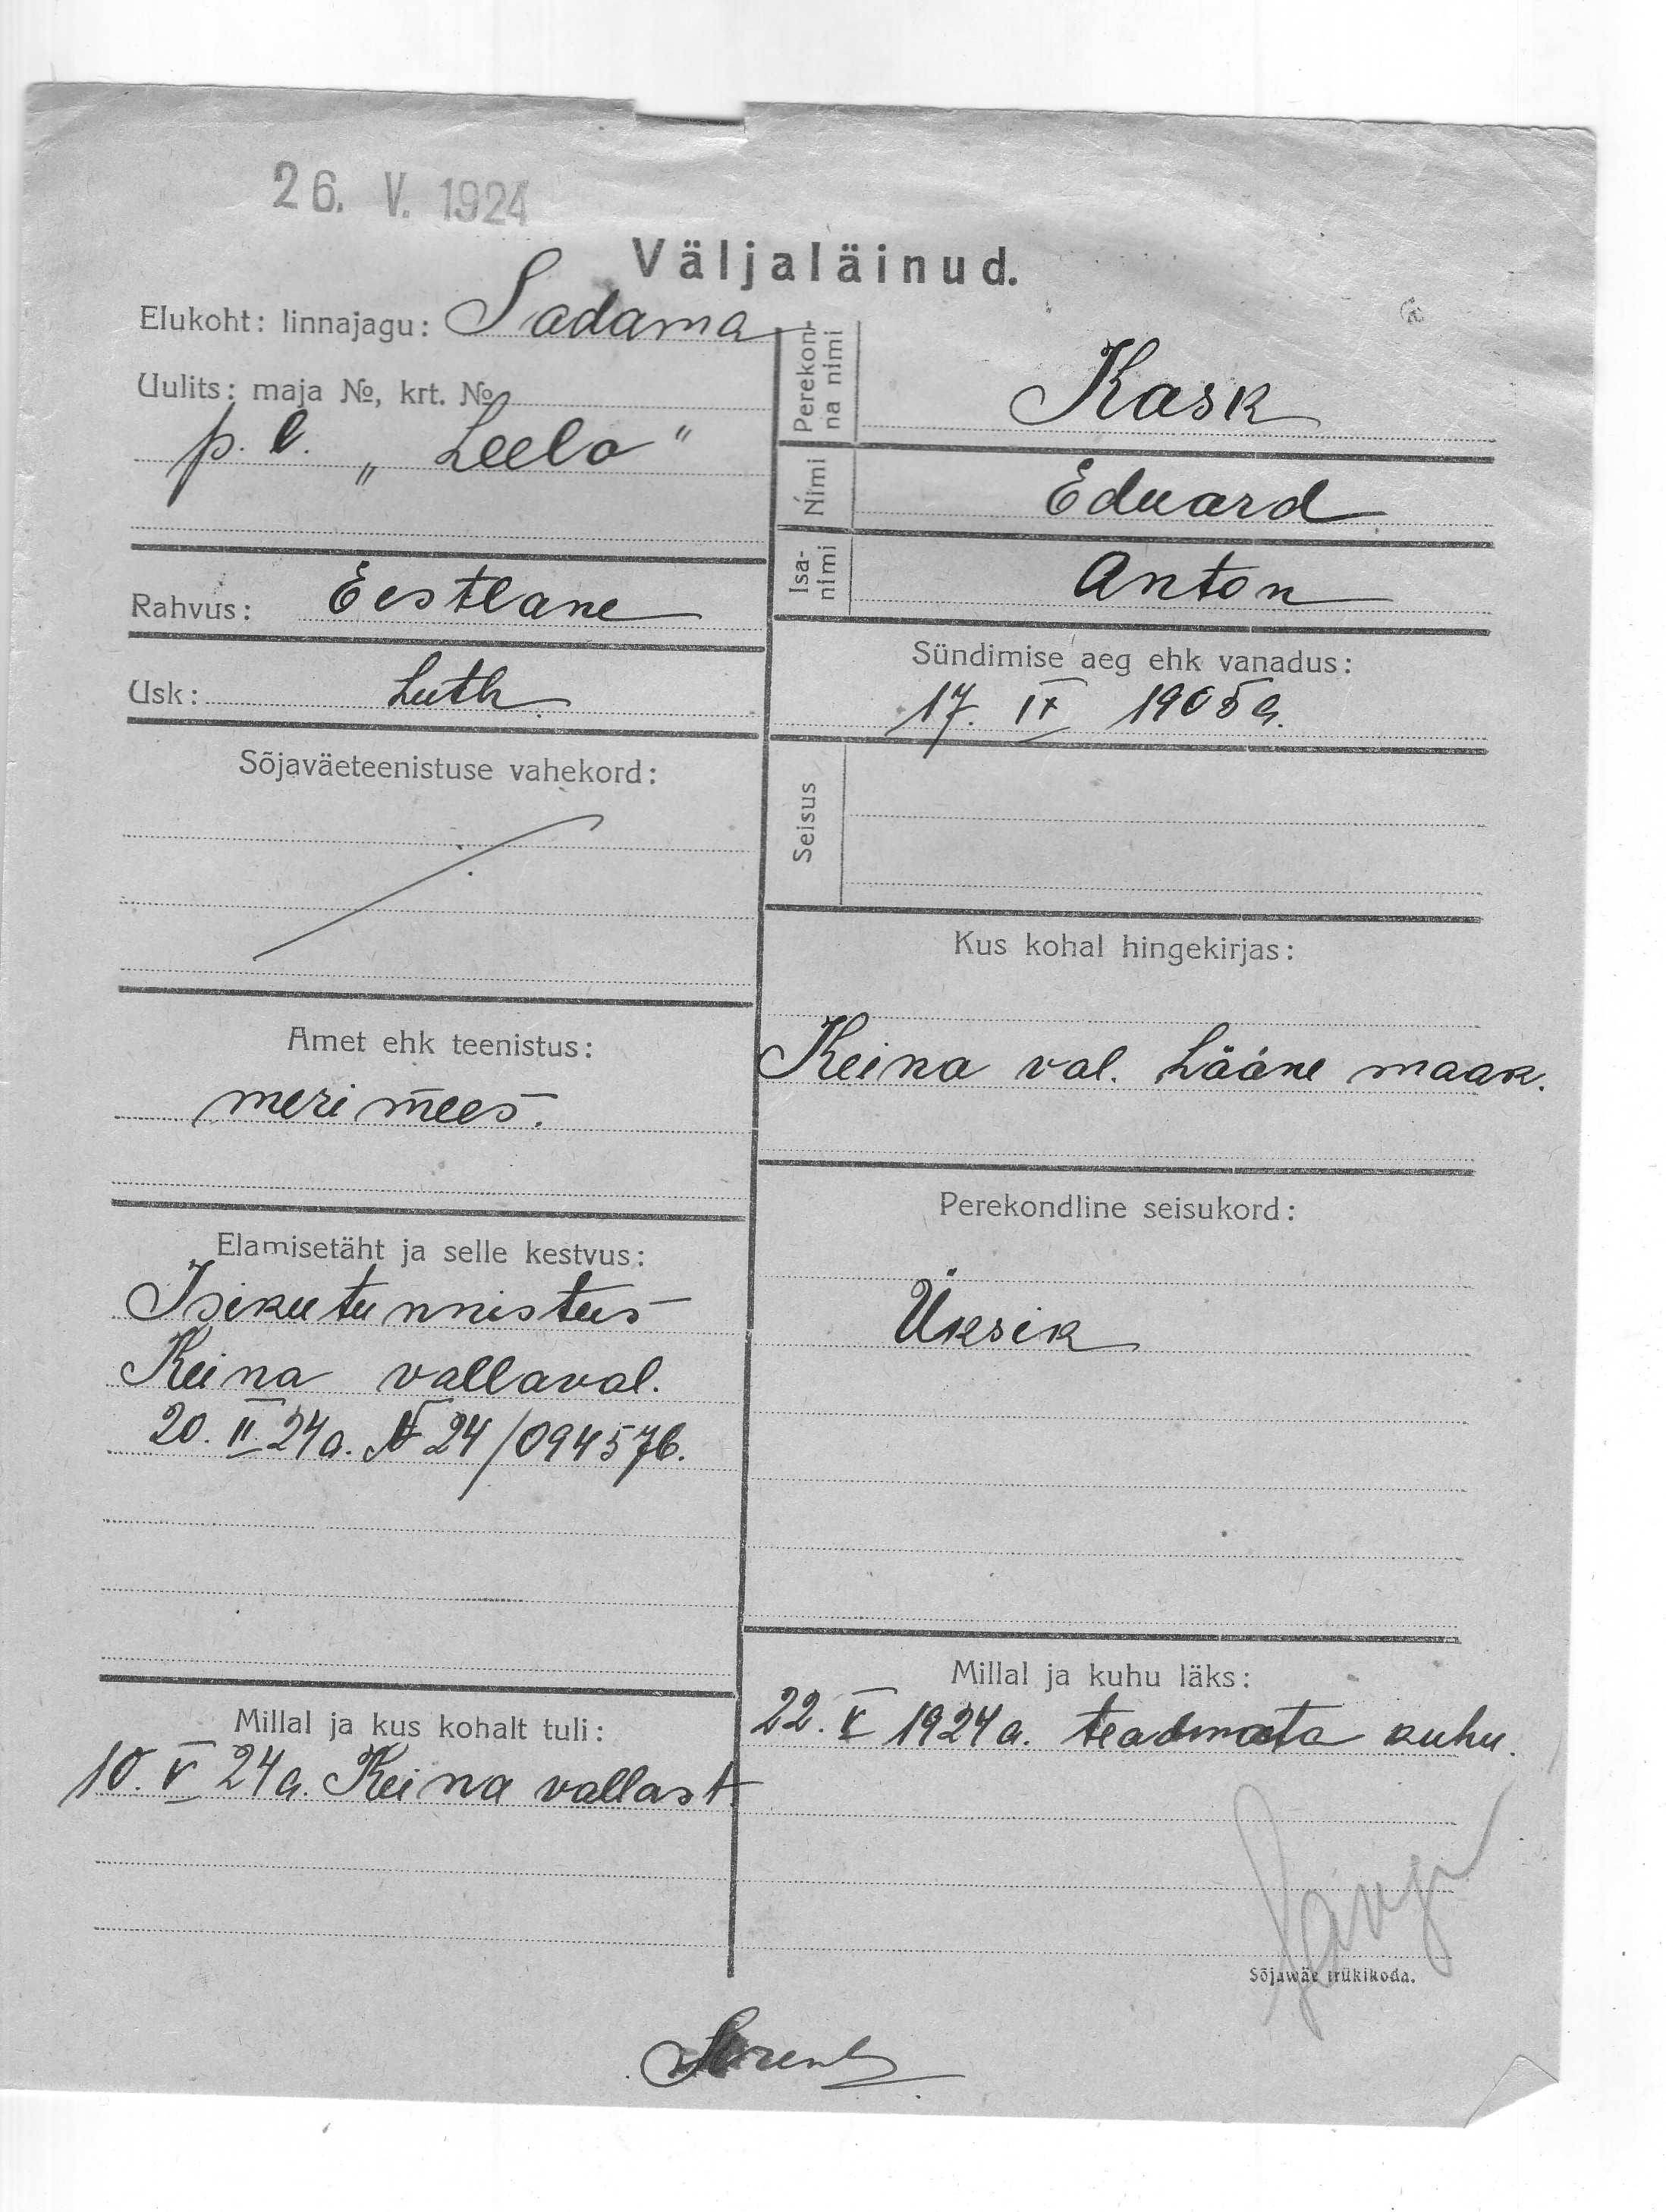 26. V. 1924
Väljaläinud.
Elukoht: linnajagu: Sadama
Uulits: maja №, krt. №
p. l. „Leelo"
Rahvus: Eestlane
Usk: Luth.
Sõjaväeteenistuse vahekord:
Amet ehk teenistus:
meri mees.
Elamisetäht ja selle kestvus:
Isikutunnistus
Keina vallaval.
20. II. 24 a. № 24/094576.
Millal ja kus kohalt tuli:
10. V 24 a. Keina vallast
Perekon-
na nimi
Kask
Nimi
Eduard
Isa-
nimi
Anton
Sündimise aeg ehk vanadus:
17. IX 1905 a.
Seisus
Kus kohal hingekirjas:
Keina val. Lääne maak.
Perekondline seisukord:
Üksik
Millal ja kuhu läks:
22. V 1924 a. teadmata kuhu.
Sõjawäe trükikoda.